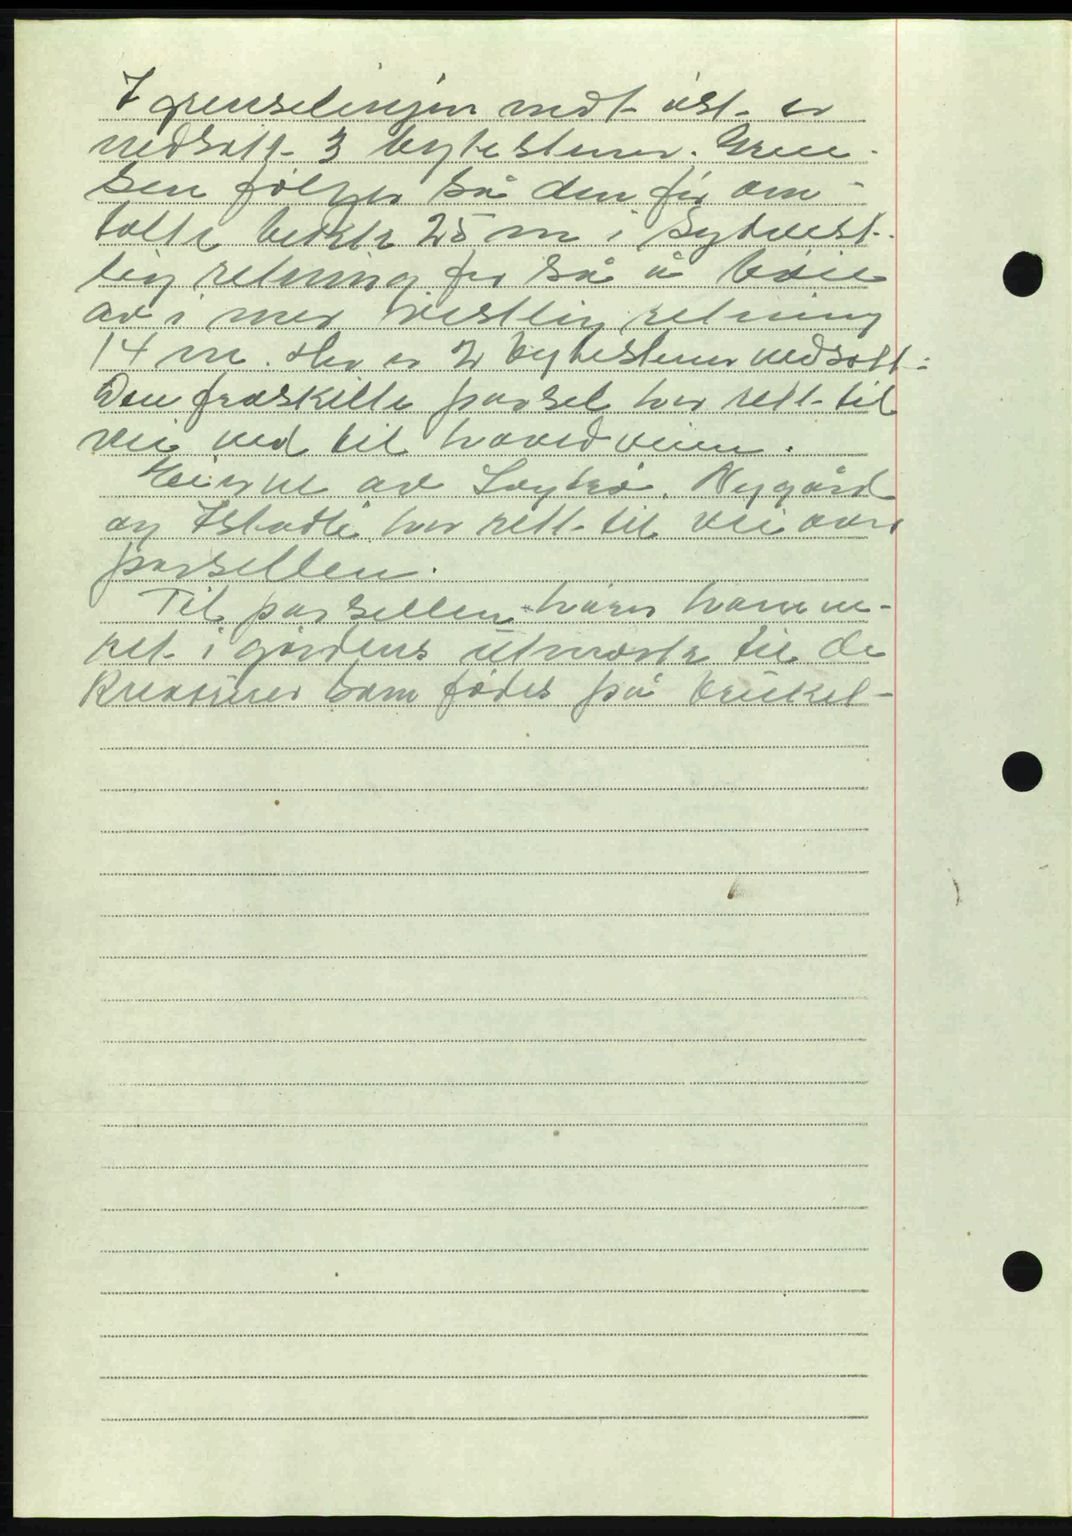 I grenselinjen mot øst er
nedsatt 3 bytestener. Gren-
sen følger så den før om-
talte bekk 25 m i sydvest-
lig retning for så å bøie
av i mer vestlig retning
14 m. Her er 2 bytestener nedsatt.
Den fraskilte parsel har rett til
vei ned til hovedveien.
av Nygård
og har rett til vei over
parsellen.
Til parsellen hører havne-
ret i gårdens utmark til de
kreaturer som fødes på bruket-